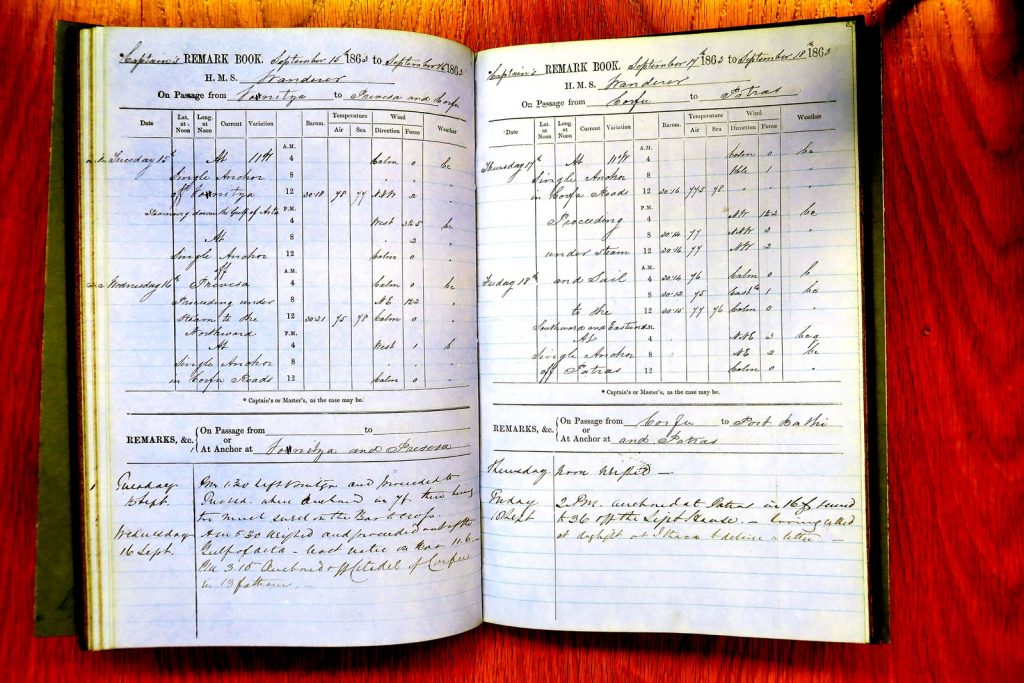 Captain's REMARK BOOK. September 15th 1863 to September 16th 1863
H. M. S. Wanderer
On Passage from Vonitza to Prevesa and Corfu
Date Lat. at Noon Long. at Noon Current Variation Barom. Temperature Air Sea Wind Direction Force Weather
A.M.
Tuesday 15th At 11°W 4 Calm 0 bc
Single Anchor 8 " " "
off Vonitza 12 30·18 78 77 NNW 2 "
P.M.
Steaming down the Gulf of Arta 4 West 3 & 5 bc
At 8 " 2 "
Single Anchor 12 Calm 0 "
off A.M.
Wednesday 16th Prevesa 4 Calm 0 bc
Proceeding under 8 NE 1 & 2 "
Steam to the 12 30·21 75 78 Calm 0 "
Northward P.M.
At 4 West 1 b
Single Anchor 8 " " "
in Corfu Roads 12 Calm 0 "
* Captain's or Master's, as the case may be.
REMARKS, &c. On Passage from to
or
At Anchor at Vonitza and Prevesa
Tuesday PM 1.30 left and proceeded to
15 Sept. when anchored in 7f there being
too much swell on the Bar to cross.
Wednesday AM 5.30 Weighed and proceeded out of the
16 Sept. Gulf of Arta - least water on Bar 11.6 -
PM 3.15 Anchored off Citadel of Corfu
in 13 fathoms. -
Captain's REMARK BOOK. September 17th 1863 to September 18th 1863
H. M. S. Wanderer
On Passage from Corfu to Patras
Date Lat. at Noon Long. at Noon Current Variation Barom. Temperature Air Sea Wind Direction Force Weather
A.M.
Thursday 17th At 11°W 4 Calm 0 bc
Single Anchor 8 Vble 1 "
in Corfu Roads 12 30·16 77·5 78 " " "
P.M.
Proceeding 4 NW 1 & 2 bc
8 30·14 77 NNW 3 "
under Steam 12 30·16 77 NW 2 "
A.M.
Friday 18th and Sail 4 30·14 76 Calm 0 b
8 30·12 75 East 1 bc
to the 12 30·15 77 76 Calm 0 "
Southward and Eastward P.M.
At 4 NNE 3 bcq
Single Anchor 8 NE 2 bc
off Patras 12 Calm 0 "
* Captain's or Master's, as the case may be.
REMARKS, &c. On Passage from Corfu to Port Bathi
or
At Anchor at and Patras
Thursday. Noon Weighed -
Friday 2 PM. anchored at Patras in 16f
18 Sept off the Light House. - having called
at daylight at Ithaca to deliver a letter -